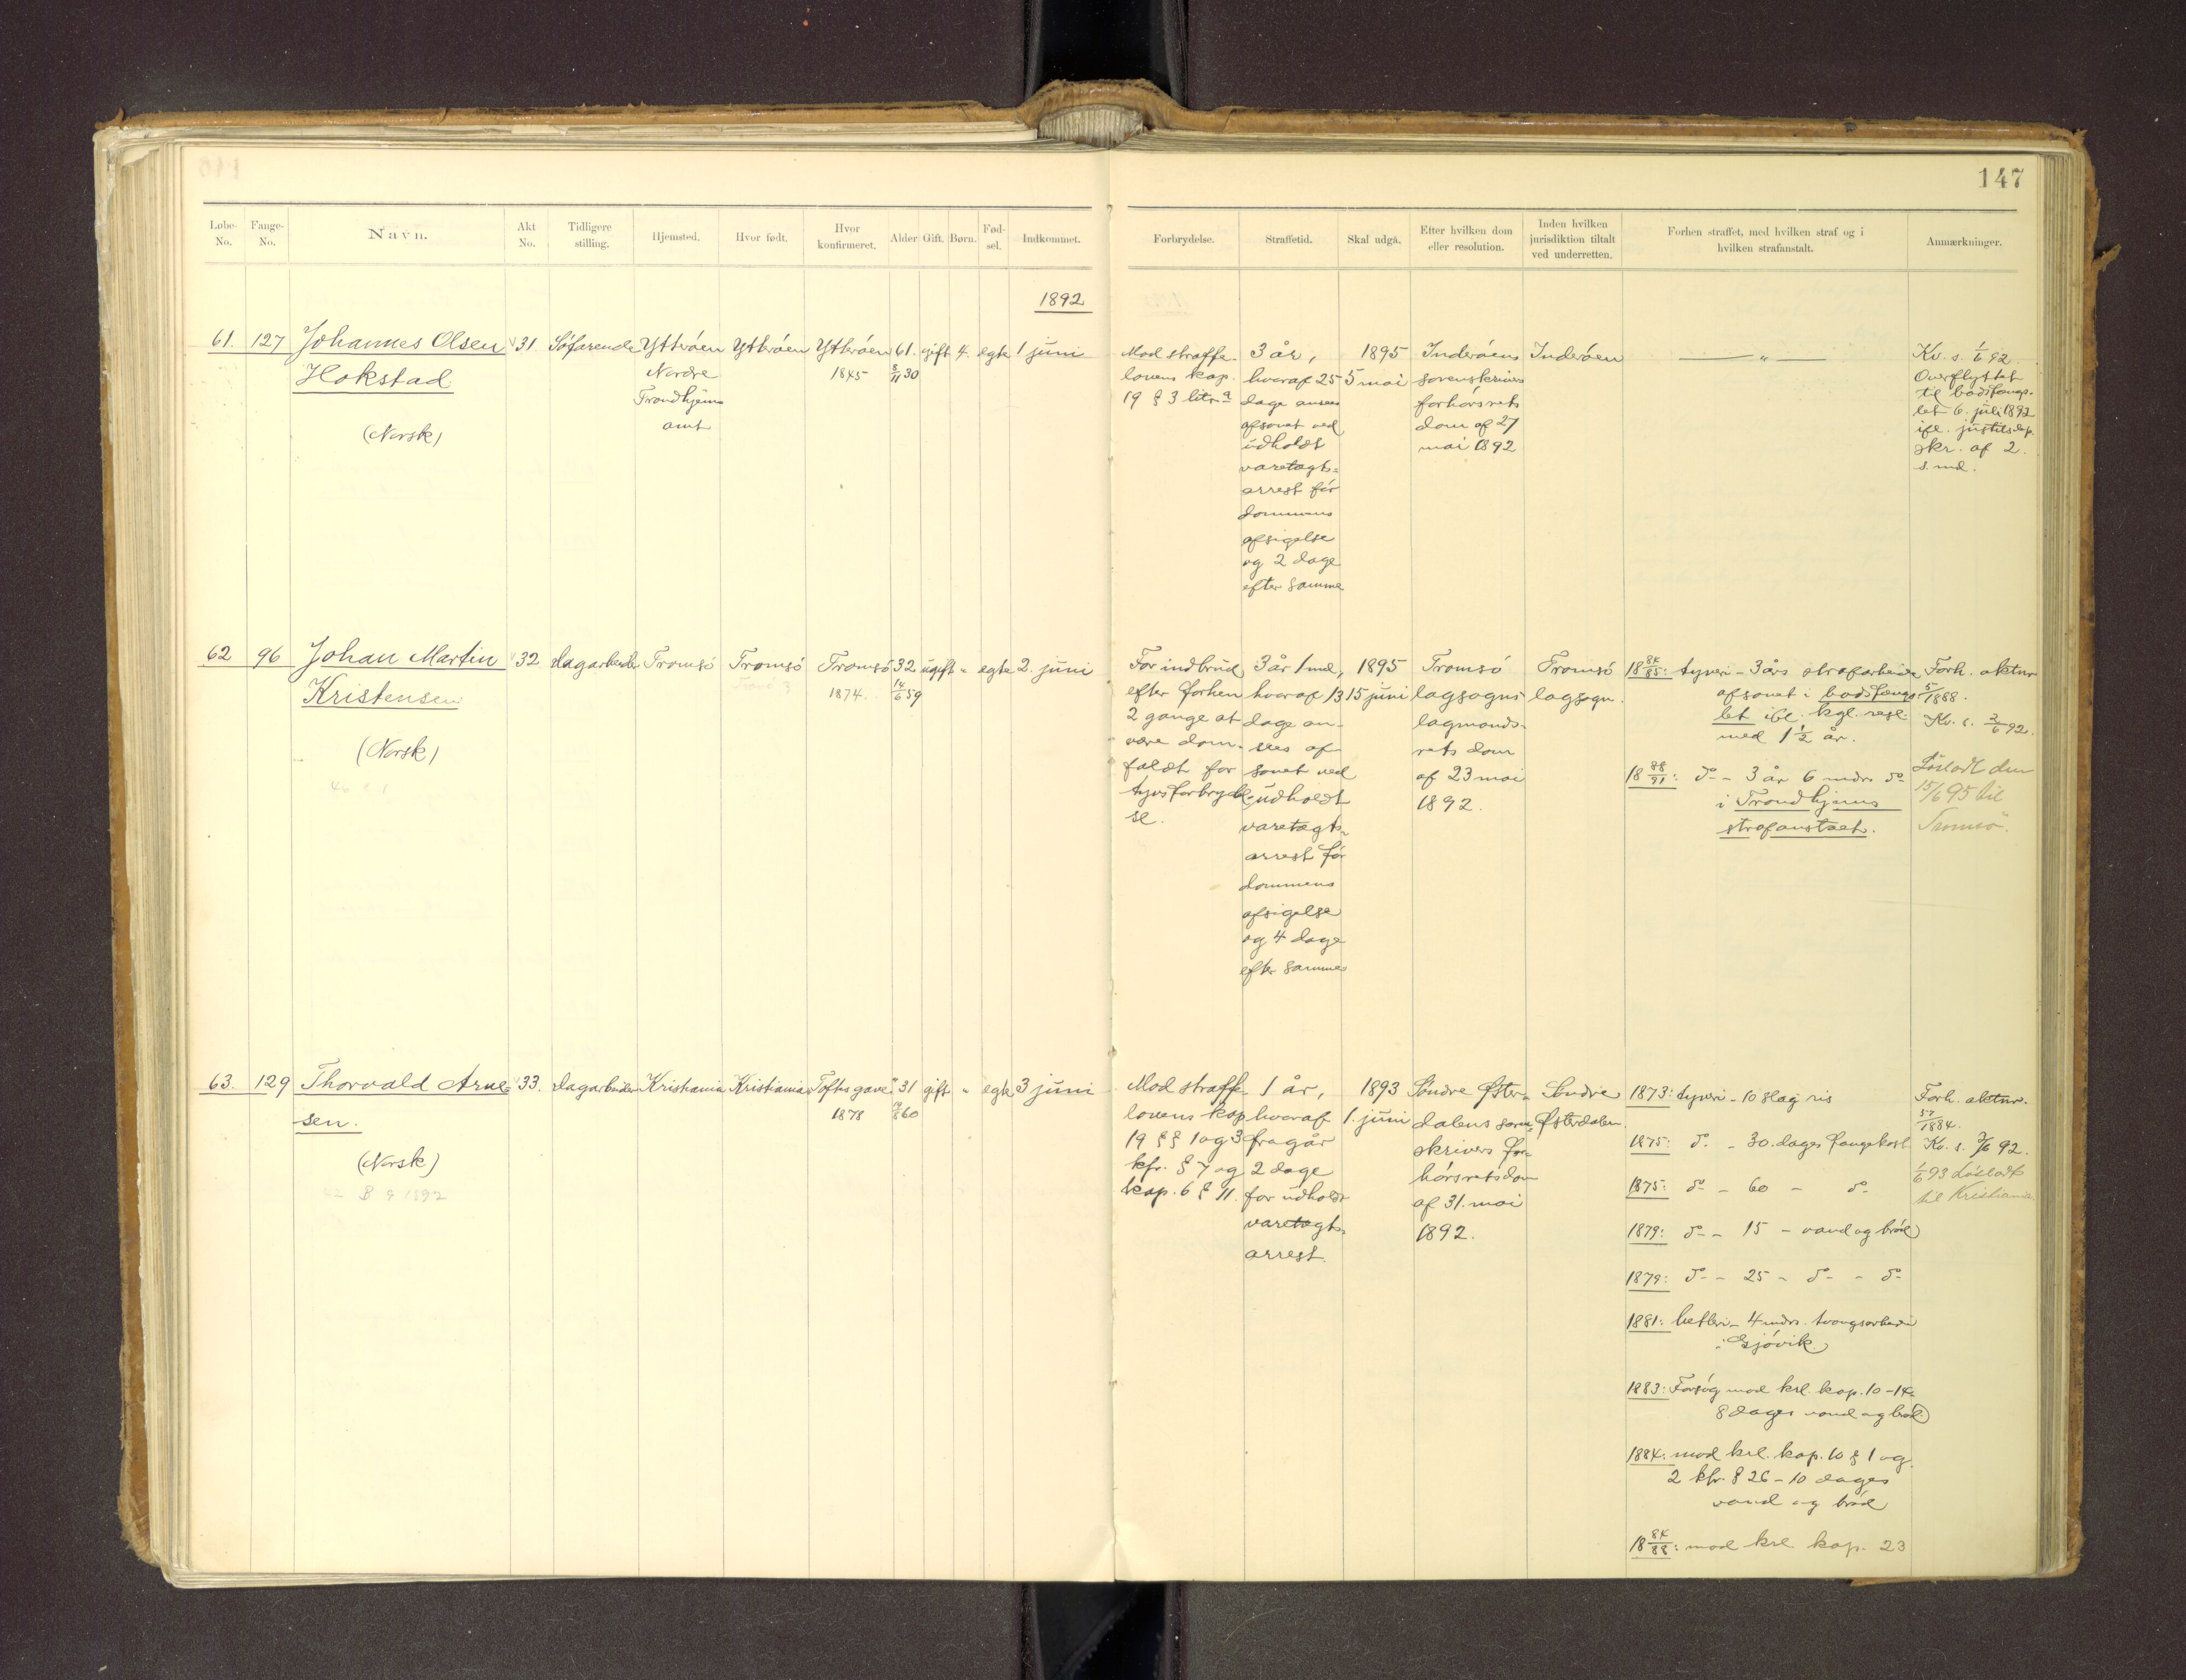 147
Løbe-No. Fange-No. Navn. Akt No. Tidligere stilling. Hjemsted. Hvor født. Hvor konfirmeret. Alder Gift. Børn. Fød-sel. Indkommet.
Forbrydelse. Straffetid. Skal udgå. Efter hvilken dom eller resolution. Inden hvilken jurisdiktion tiltalt ved underretten. Forhen straffet, med hvilken straf og i hvilken strafanstalt. Anmærkninger.
1892
61. 127 Johannes Olsen
Hokstad
(Norsk)
31
Søfarende
Ytterøen
Nordre
Trondhjems
amt
Ytterøen
Ytterøen
1845
61.
8/11 30
gift
4.
egte
1 juni
Mod straffe-
lovens kap.
19 § 3 litr. a
3 år,
hvoraf 25
dage ansees
afsonet ved
udholdt
varetægts=
arrest før
dommens
afsigelse
og 2 dage
efter samme
1895
5 mai
Inderøens
sorenskrivers
forhørsrets
dom af 27
mai 1892
Inderøen
— " —
Kv. s. 1/6 92.
Overflyttet
til bodsfæng-
let 6. juli 1892
ifl. justitsdep.
skr. af 2.
s. md.
62 96 Johan Martin
Kristensen
(Norsk)
32
dagarbeider
Tromsø
Tromsø
Tromsø
1874.
32
14/6 59
ugift
"
egte
2. juni
For indbrud
efter forhen
2 gange at
være dom-
fældt for
tyvsforbrydel-
se.
3 år 1 md,
hvoraf 13
dage an-
sees af-
sonet ved
udholdt
varetægts-
arrest før
dommens
afsigelse
og 4 dage
efter sammes
1895
15 juni
Tromsø
lagsogns
lagmands-
rets dom
af 23 mai
1892.
Tromsø
lagsogn.
18 84/85: tyveri - 3 års strafarbeide
afsonet i bodsfæng-
let ifl. kgl. resl.
med 1 1/2 år.
18 88/91: do - 3 år 6 mdrs do
i Trondhjems
strafanstalt.
Forh. aktnr
5/1888.
Kv. s. 2/6 92.
Løsladt den
15/6 95 til
Tromsø.
63. 129 Thorvald Arne=
sen.
(Norsk)
B 9 1892
33.
dagarbeider
Kristiania
Kristiania
Toftes gave
1878
31
gift
"
egte
3 juni
Mod straffe
lovens kap
19 §§ 1 og 3
kfr. § 7 og
kap. 6 § 11.
1 år,
hvoraf
fragår
2 dage
for udholdt
varetægts-
arrest.
1893
1. juni
Søndre Øster-
dalens soren-
skrivers for-
hørsretsdom
af 31. mai
1892.
Søndre
Østerdalen.
1873: tyveri - 10 slag ris
1875: do - 30. dages fangekost
1875: do - 60 - do
1879: do - 15 - vand og brød
1879: do - 25 - do - do
1881: betleri - 4 mdrs. tvangsarbeide
i Gjøvik
1883: Forsøg mod krl. kap. 10-14
8 dages vand og brød
1884: mod krl. kap. 10 § 1 og
2 kfr. § 26 - 10 dages
vand og brød
18 84/88: mod krl. kap. 23
Forh. aktnr.
57/1884.
Kv. s. 3/6 92.
1/6 93 Løsladt
til Kristiania